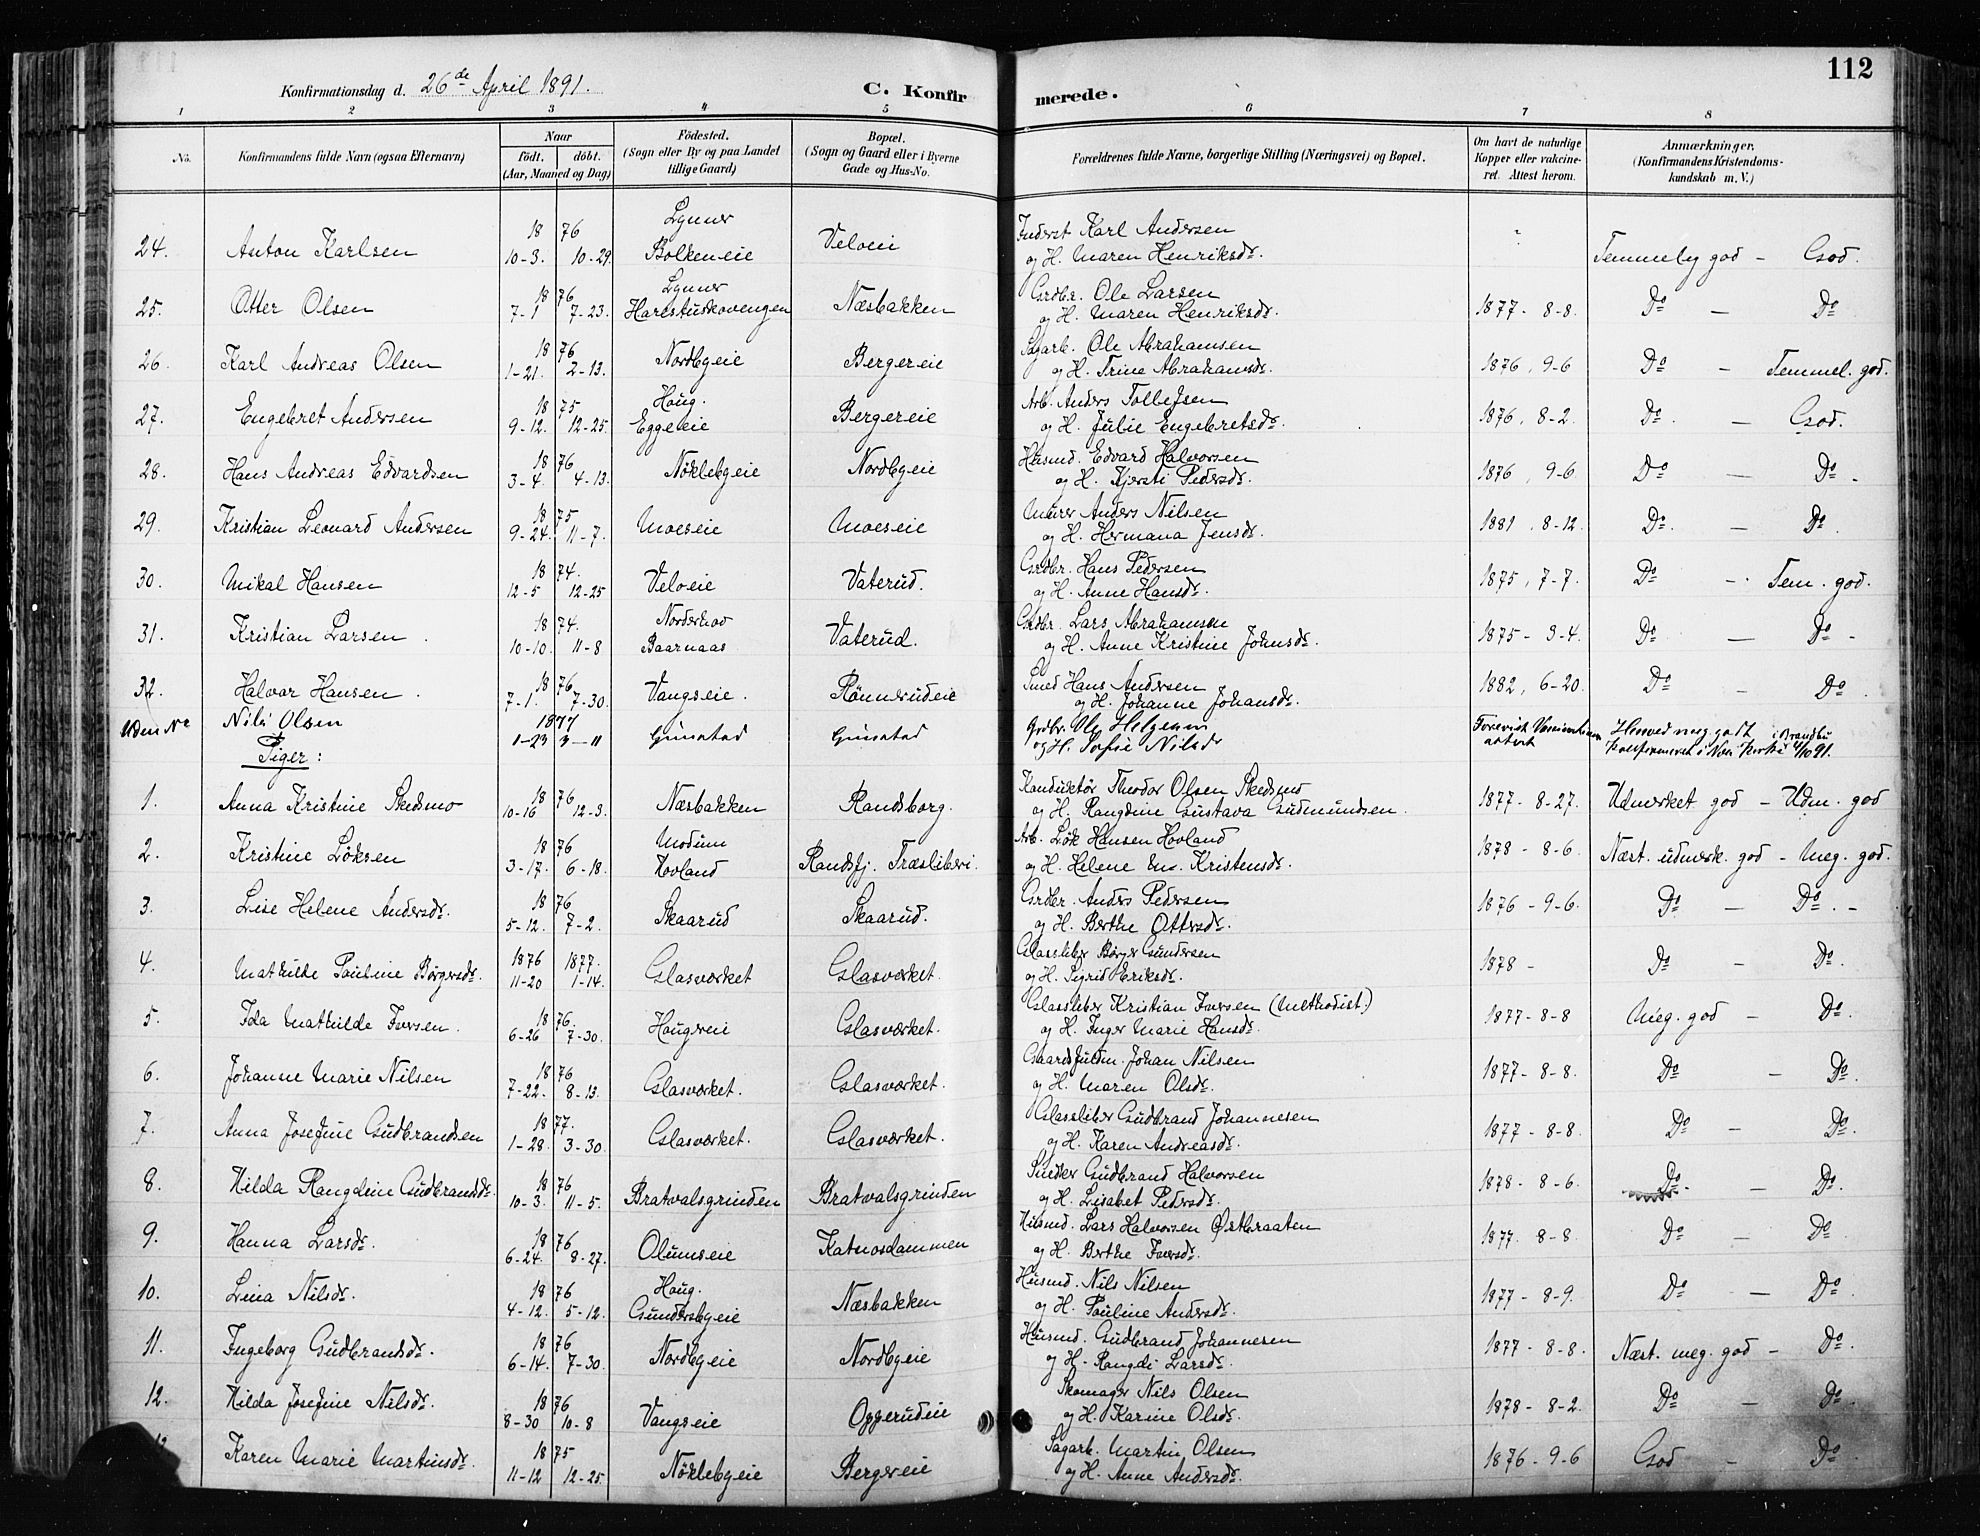 112
Konfirmationsdag d. 26de April 1891.
C. Konfirmerede.
1 2 3 4 5 6 7 8
No. Konfirmandens fulde Navn (ogsaa Efternavn) Naar födt. döbt. (Aar, Maaned og Dag) Födested. (Sogn eller By og paa Landet tillige Gaard) Bopæl. (Sogn og Gaard eller i Byerne Gade og Hus-No. Forældrenes fulde Navne, borgerlige Stilling (Næringsvei) og Bopæl. Om havt de naturlige Kopper eller vakcineret. Attest herom. Anmærkninger. (Konfirmandens Kristendomskundskab m. V.)
24. Anton Karlsen 1876 10-3. 10-29. Lynner Bolkeneie Veloeie Inderst Karl Andersen
og H. Maren Henriksdr. Temmelig god - God.
25. Otter Olsen 1876 7-1 7-23. Lynner Harestuskovengen Næsbakken Grdbr. Ole Larsen
og H. Maren Henriksdr. 1877-8-8. Do - Do
26. Karl Andreas Olsen 1876 1-21. 2-13. Nordbyeie Bergereie Sagarb. Ole Abrahamsen
og H. Trine Abrahamsdr. 1876, 9-6 Do - Temmel. god.
27. Engebret Andersen 1875 9-12. 12-25. Houg. Eggeeie Bergereie Arb. Anders Tollefsen
og H. Julie Engebretsdr. 1876, 8-2. Do. - God.
28. Hans Andreas Edvardsen 1876 3-4. 4-13. Nøklebyeie Nordbyeie Husmd. Edvard Halvorsen
og H. Kjersti Pedersdr. 1876, 9-6 Do - Do.
29. Kristian Leonard Andersen 1875 9-24. 11-7. Moeseie Moeseie Murer Anders Nilsen
og H. Hermana Jensdr. 1881, 8-12. Do. - Do.
30. Mikal Hansen 1874. 12-5 12-25 Veloeie Vaterud. Grdbr. Hans Pedersen
og H. Anne Hansdr. 1875, 7-7. Do - Tem. god.
31. Kristian Larsen 1874. 10-10. 11-8 Norderhov Baarnaas Vaterud. Grdbr. Lars Abrahamsen
og H. Anne Kristine Johnsdr. 1875-3-4. Do - Do -
32. Halvor Hansen 1876 7-1. 7-30. Vangseie. Rönnerudeie Smed Hans Andersen
og H. Johanne Johansdr. 1882, 6-20. Do - Do.
Uden No Nils Olsen 1877 1-23 3-11 Grinstad Grinstad Grdbr. Ole Helgesen
og H. Sofie Nilsdr Forevist Vaccinations attest Henved meg. godt
Konfirmeret i Nes Kirke i Brandbu 4/10 91.
Piger:
1. Anna Kristine Skedsmo 1876 10-16 12-3. Næsbakken Randsborg. Konduktør Theodor Olsen Skedsmo
og H. Rangdine Gustava Gudmundsen. 1877-8-27. Udmerket god - Udm. god
2. Kristine Løksen 1876 3-17. 6-18. Modum Hovland Randsfj. Træsliberi. Arb. Løk Hansen Hovland
og H. Helene Em. Kristensdr. 1878-8-6. Næst. udmerk. god - Meg. god.
3. Lise Helene Andersdr. 1876 5-12. 7-2. Skaarud Skaarud. Grdbr. Anders Pedersen
og H. Berthe Ottersdr. 1876-9-6. Do - Do. -
4. Mathilde Pauline Børgersdr. 1876 11-20 1877. 1-14. Glasværket Glasværket. Glassliber Børger Gundersen
og H. Sigrid Eriksdr. 1878- Do - Do.
5. Ida Mathilde Iversen. 1876. 6-26 7-30. Hougseie Glasværket. Glassliber Kristian Iversen (Methodist.)
og H. Inger Marie Hansdr. 1877-8-8 Meg. god - Do.
6. Johanne Marie Nilsen 1876 7-22. 8-13. Glasværket. Glasværket. Gaardsfuldm. Johan Nilsen
og H. Maren Olsdr. 1877-8-8. Do - Do.
7. Anna Josefine Gudbrandsen 1877. 1-28. 3-30. Glasværket. Glasværket. Glassliber Gudbrand Johannesen
og H. Karen Andreasdr. 1877-8-8. Do - Do.
8. Hilda Rangdine Gudbrandsdr. 1876 10-3. 11-5. Bratvalsgrinden Bratvalsgrinden Snedker Gudbrand Halvorsen
og H. Lisabet Pedersdr. 1878-8-6. Do. - Do.
9. Hanna Larsdr. 1876 6-24. 8-27. Olumseie Katnosdammen Husmd. Lars Halvorsen Østbraaten
og H. Berthe Iversdr. 1877-8-8. Do - Do.
10. Lina Nilsdr. 1876 4-12. 5-12. Houg. Gundersbyeie Næsbakken Husmd. Nils Nilsen
og H. Pauline Andersdr. 1877-8-9. Do - Do.
11. Ingeborg Gudbrandsdr. 1876 6-14. 7-30. Nordbyeie Nordbyeie Husmd. Gudbrand Johannesen
og H. Rangdi Larsdr. 1877-8-8. Næst. meg. god - Do.
12. Hilda Josefine Nilsdr. 1876 8-30 10-8 Vangseie Oggerudeie Skomager Nils Olsen
og H. Karine Olsdr. 1878-8-2. Do - Do.
Karen Marie Martinsdr. 1875 11-12 12-25. Nøklebyeie Bergereie Sagarb. Martin Olsen
og H. Anne Andersdr. 1876-9-6 God - Do.